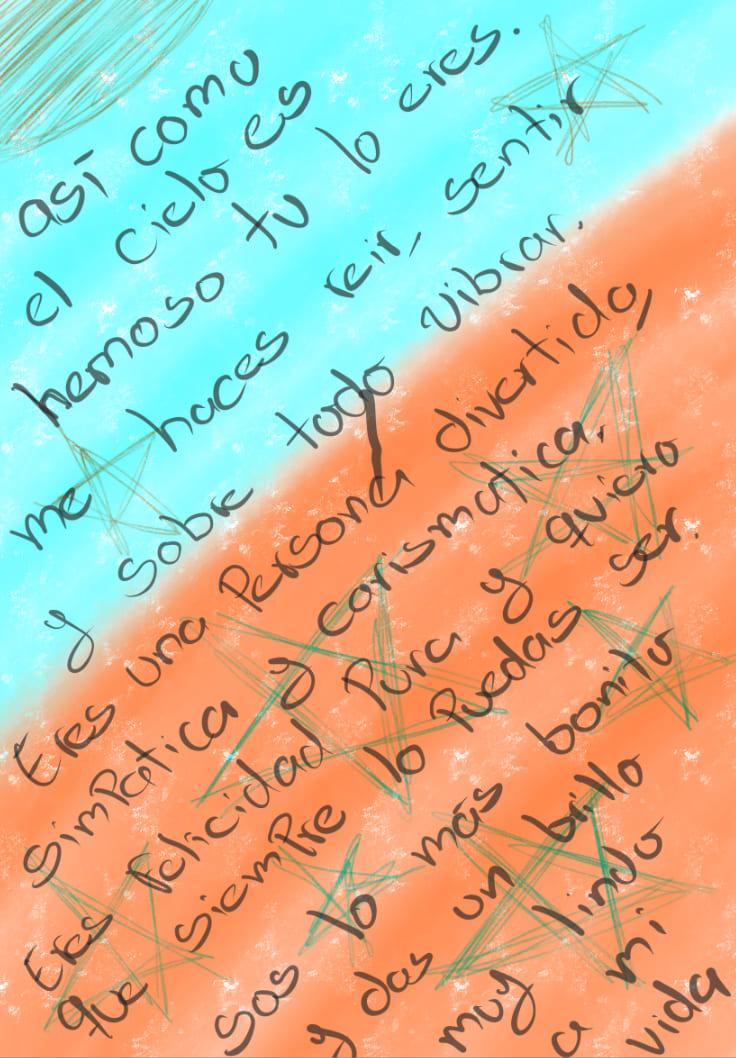 así como
el cielo es
hemoso tu lo eres.
me haces reir, sentir
y sobre todo vibrar.
Eres una Persona divertida,
simPatica y carismatica,
Eres felicidad Pura y quiero
que siemPre lo Puedas ser.
sos lo más bonito
y das un brillo
muy lindo
a mi
vida